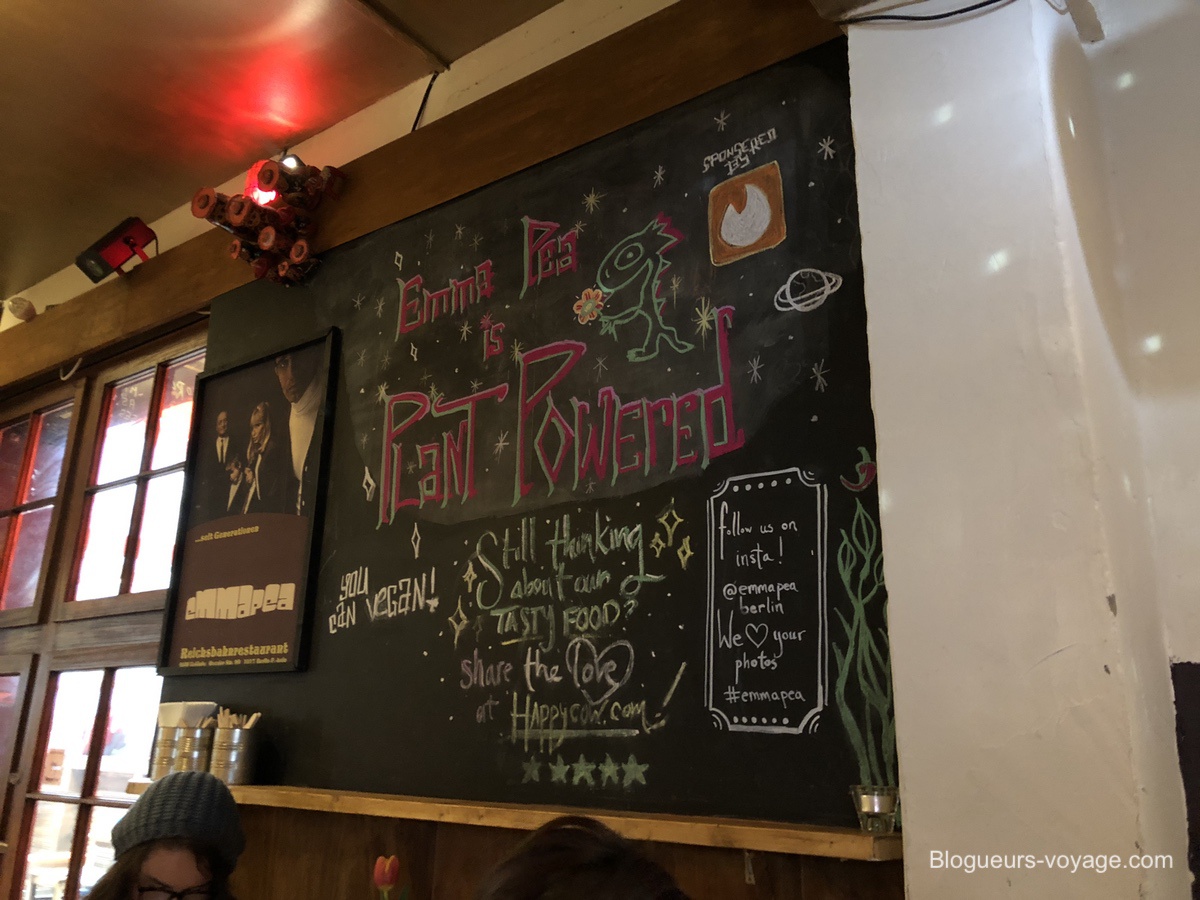 SPONSERED
BY
Emma Pea
is
PLaNT POWered
YOU
CAN VEGAN!
Still thinking
about our
TASTY FOOD?
share the love
at HAPPYCOW.com!
follow us on
insta!
@emmapea
berlin
We ♡ your
photos
#emmapea
...seit Generationen
emmapea
Reichsbahnrestaurant
Blogueurs-voyage.com